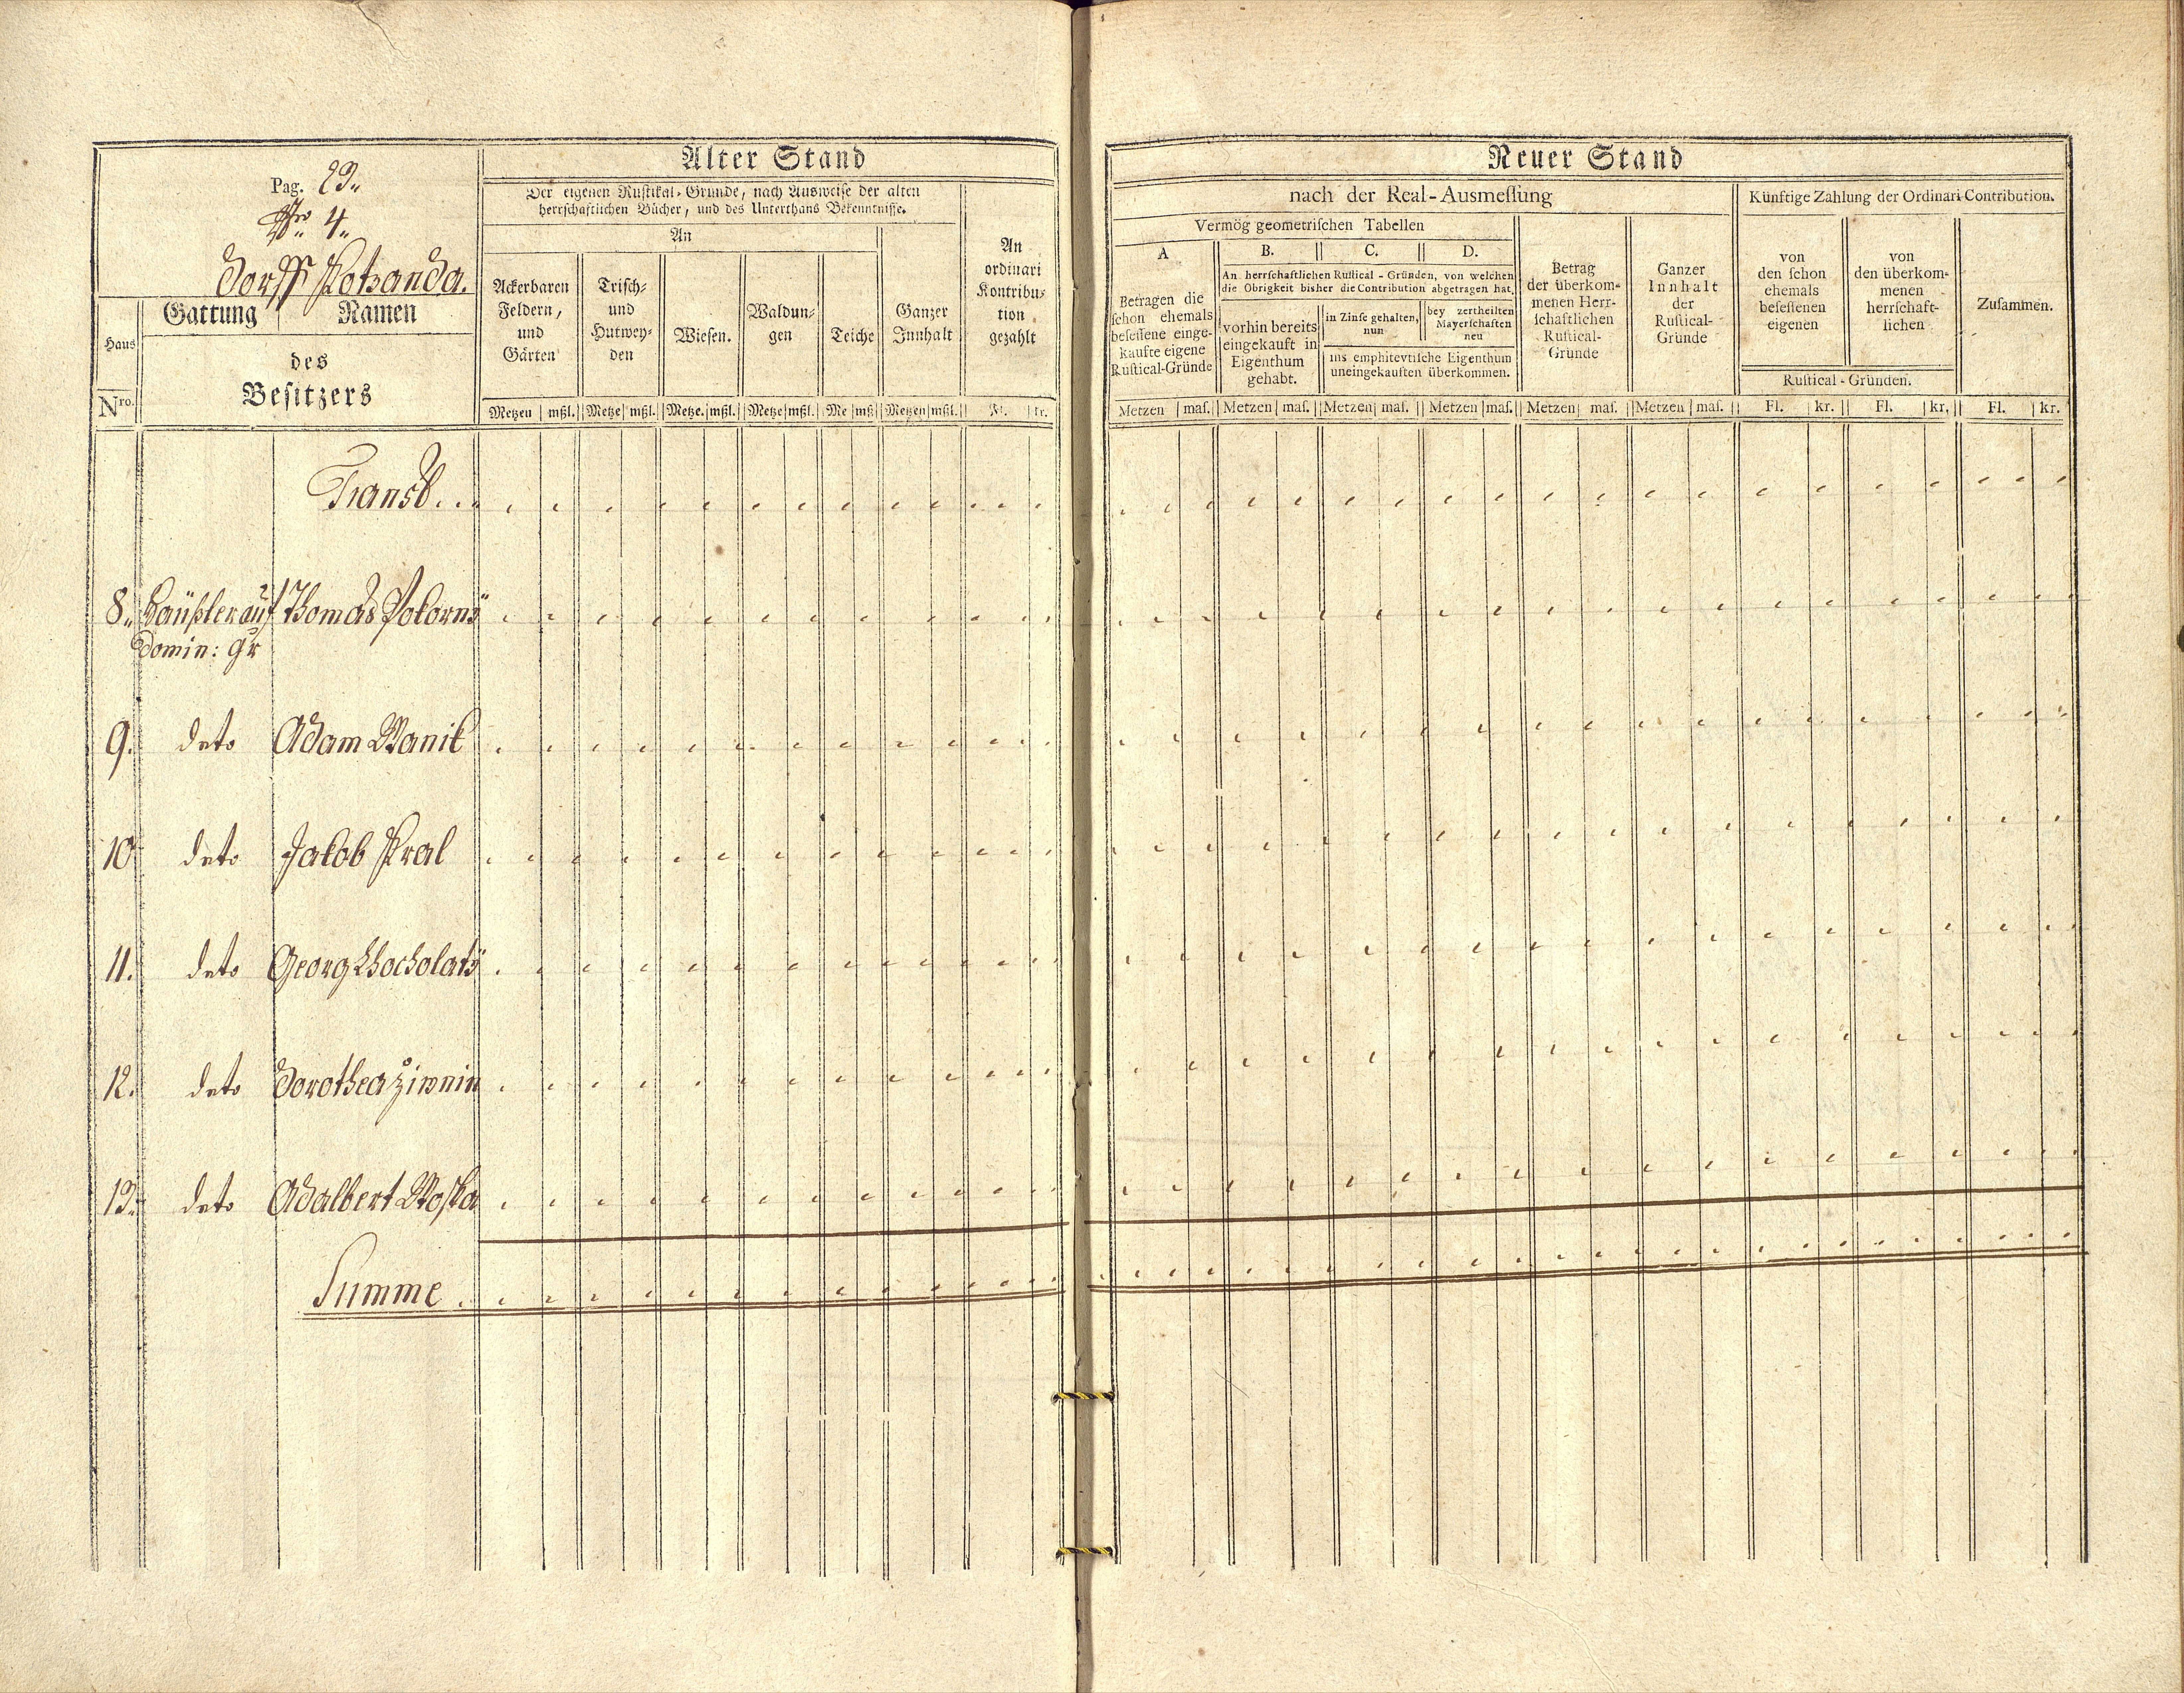 Pag. 29.
Nro 4.
Dorff Kotzanda.
Haus
Nro.
Gattung Namen
des
Besitzers
Alter Stand
Der eigenen Rustikal-Gründe, nach Ausweise der alten
herrschaftlichen Bücher, und des Unterthans Bekenntnisse.
An
Ackerbaren
Feldern,
und
Gärten
Trisch-
und
Hutwey-
den
Wiesen.
Waldun-
gen
Teiche
Ganzer
Innhalt
An
ordinari
Kontribu-
tion
gezahlt
Metzen mßl. Metze mßl. Metze. mßl. Metze mßl. Me mß Metzen mßl. Fl. kr.
Neuer Stand
nach der Real-Ausmeſſung
Vermög geometriſchen Tabellen
A
Betragen die
ſchon ehemals
beſeſſene einge-
kaufte eigene
Ruſtical-Gründe
B. C. D.
An herrſchaftlichen Ruſtical-Gründen, von welchen
die Obrigkeit bisher die Contribution abgetragen hat,
vorhin bereits
eingekauft in
Eigenthum
gehabt.
in Zinſe gehalten,
nun
bey zertheilten
Mayerſchaften
neu
ins emphitevtiſche Eigenthum
uneingekauften überkommen.
Betrag
der überkom-
menen Herr-
ſchaftlichen
Ruſtical-
Gründe
Ganzer
Innhalt
der
Ruſtical-
Gründe
Künftige Zahlung der Ordinari-Contribution.
von
den ſchon
ehemals
beſeſſenen
eigenen
von
den überkom-
menen
herrſchaft-
lichen
Ruſtical-Gründen.
Zuſammen.
Metzen maſ. Metzen maſ. Metzen maſ. Metzen maſ. Metzen maſ. Metzen maſ. Fl. kr. Fl. kr. Fl. kr.
Transt...
8. Häußler auf Thomas Pokorný
Domin: Gr
9. deto Adam Wanik
10 deto Jakob Kral
11. deto Georg Chocholatý
12. deto Dorothea Ziwnin
13. deto Adalbert Woska
Summe